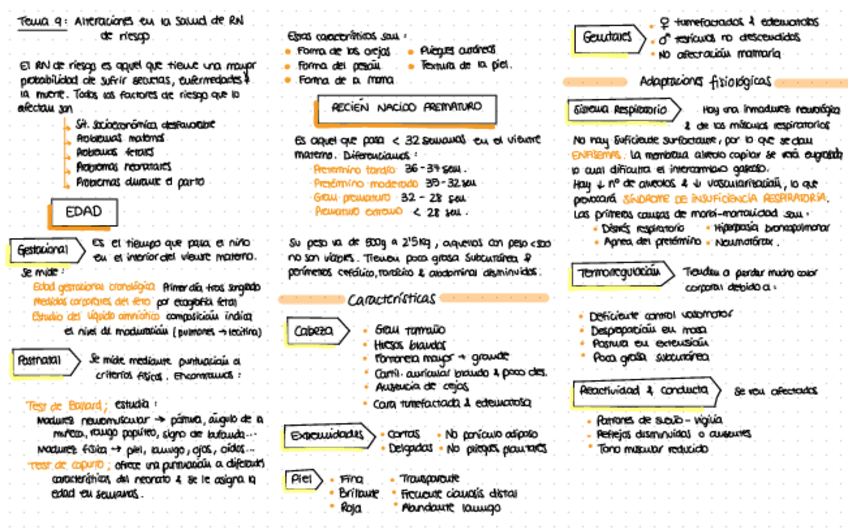 Tema 9: Alteraciones en la Salud de RN
de riesgo
El RN de riesgo es aquel que tiene una mayor
probabilidad de sufrir secuelas, enfermedades y
la muerte. Todos los factores de riesgo que lo
afectan son
Sit. socioeconómica desfavorable
Problemas maternos
Problemas fetales
Problemas neonatales
Problemas durante el parto
EDAD
Gestacional
Es el tiempo que pasa el niño
en el interior del vientre materno.
Se mide:
Edad gestacional cronológica Primer día tras sangrado
Medidas corporales del feto por ecografía fetal
Estudio del líquido amniótico composición indica
el nivel de maduración (pulmones → lecitina)
Postnatal
Se mide mediante puntuación a
criterios físicos. Encontramos:
Test de Ballard; estudia:
Madurez neuromuscular → postura, ángulo de la
muñeca, rango poplíteo, signo de bufanda...
Madurez física → piel, lanugo, ojos, oídos...
Test de capurro; ofrece una puntuación a diferentes
características del neonato & se le asigna la
edad en semanas.
Estas características son:
• Forma de las orejas • Pliegues cutáneos
• Forma del pezón • Textura de la piel.
• Forma de la mama
RECIÉN NACIDO PREMATURO
Es aquel que pasa < 32 semanas en el vientre
materno. Diferenciamos:
· Pretérmino tardío 36-34 sem.
· Pretérmino moderado 33-32 sem
· Gran prematuro 32 - 28 sem
· Prematuro extremo < 28 sem.
Su peso va de 500g a 2'5kg, aquellos con peso <500
no son viables. Tienen poca grasa subcutánea &
perímetros cefálico, torácico & abdominal disminuidos.
Características
Cabeza
• Gran tamaño
• Huesos blandos
• Fontanela mayor → grande
• Cartil. auricular blando & poco des.
• Ausencia de cejas
• Cara tumefactada & edematosa
Extremidades
• Cortas • No panículo adiposo
• Delgadas • No pliegues plantares
Piel
• Fina • Transparente
• Brillante • Frecuente cianosis distal
• Roja • Abundante lanugo
Genitales
♀ tumefactados & edematosos
♂ testículos no descendidos
• No afectación mamaria
Adaptaciones fisiológicas
Sistema Respiratorio
Hay una inmadurez neurológica
& de los músculos respiratorios
No hay suficiente surfactante, por lo que se dan
ENFISEMAS. La membrana alveolo capilar se verá engrosada
lo cual dificultará el intercambio gaseoso.
Hay ↓ nº de alveolos & ↓ vascularización, lo que
provocará SÍNDROME DE INSUFICIENCIA RESPIRATORIA.
Las primeras causas de morbi-mortalidad son:
• Distrés respiratorio • Hiperplasia broncopulmonar
• Apnea del pretérmino • Neumotórax.
Termorregulación
Tienden a perder mucho calor
corporal debido a:
• Deficiente control vasomotor
• Desproporción en masa
• Postura en extensión
• Poca grasa subcutánea
Reactividad & conducta
Se ven afectados
• Patrones de sueño - vigilia
• Reflejos disminuidos o ausentes
• Tono muscular reducido